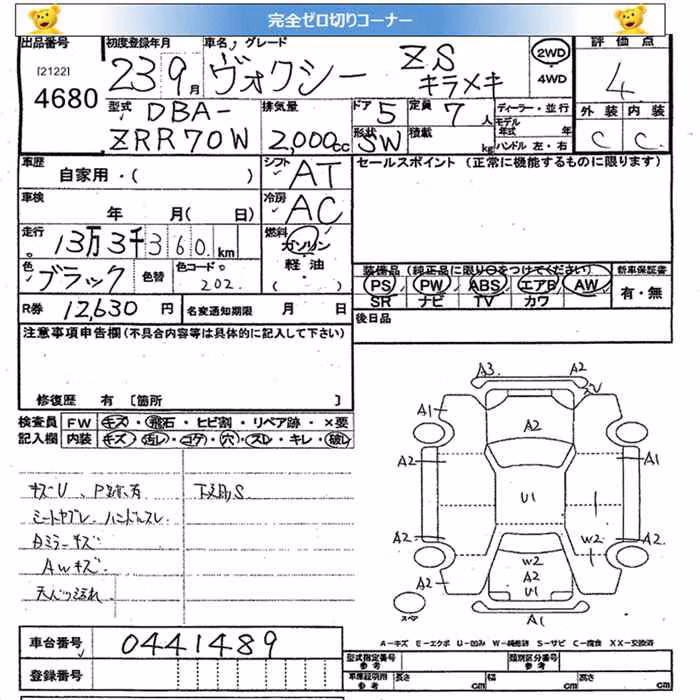 完全ゼロ切りコーナー
出品番号 [2122] 4680
初度登録年月 23年 9月
車名・グレード ヴォクシー ZS キラメキ
2WD 4WD
評価点 4
型式 DBA-ZRR70W
排気量 2,000cc
ドア 5 形状 SW
定員 7人 積載 kg
ディーラー・並行
モデル年式 年
ハンドル 左・右
外装 C 内装 C
車歴 自家用・( )
シフト AT
セールスポイント (正常に機能するものに限ります)
車検 年 月( 日)
冷房 AC
走行 13万3千360km
燃料 ガソリン 軽油・( )
色 ブラック 色替 色コードNo. 202
装備品(純正品に限り○をつけてください) 新車保証書
PS PW ABS エアB AW 有・無
SR ナビ TV カワ
R券 12,630円 名変通知期限 月 日
後日品
注意事項申告欄(不具合内容等は具体的に記入して下さい)
修復歴 有 [箇所 ]
検査員 FW キズ・飛石・ヒビ割・リペア跡・×要
記入欄 内装 キズ・汚レ・コゲ・穴・スレ・キレ・破レ
キズU、P跡有 下廻S
シートヤブレ ハンドルスレ
Bミラーキズ
AWキズ
天バリ汚れ
A3 A2
A1 A2
A2 A1
U1
A2 W2 A2
W2
A2 A2 U1
A1
A-キズ E-エクボ U-凹み W-補修跡 S-サビ C-腐食 XX-交換済
車台番号 0441489
登録番号
型式指定番号 参考 類別区分番号 参考
車庫証明用 参考 長さ cm 幅 cm 高さ cm